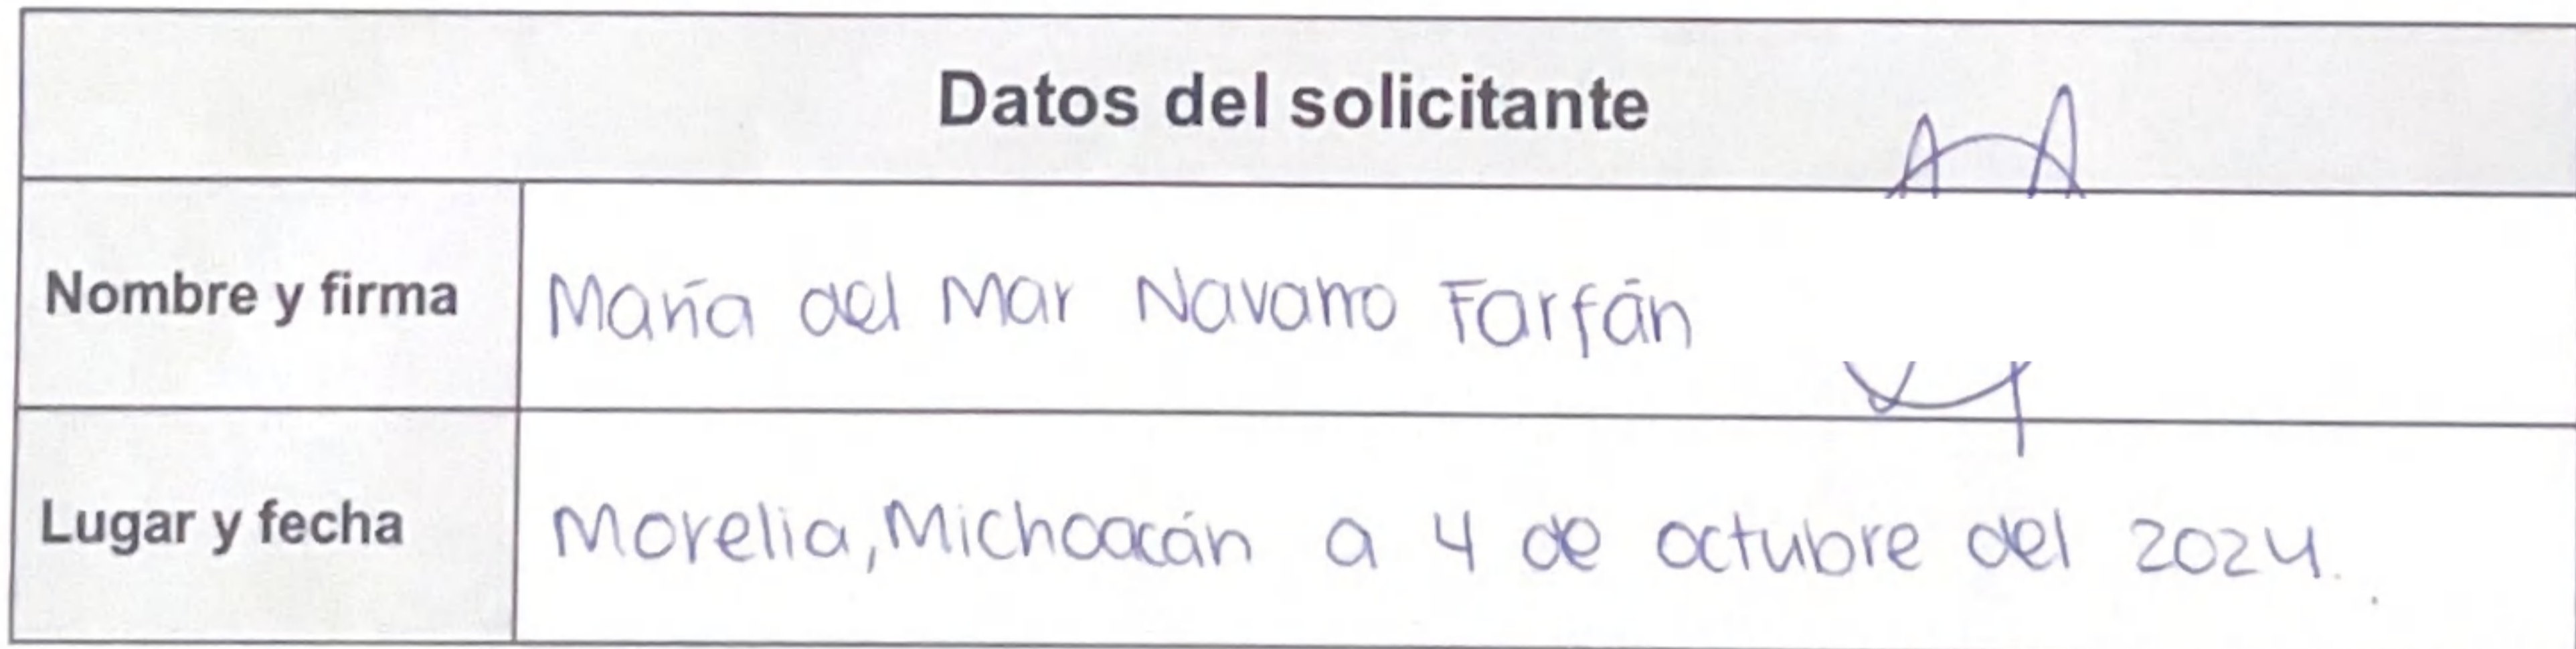 Datos del solicitante
Nombre y firma María del Mar Navarro Farfán
Lugar y fecha Morelia, Michoacán a 4 de octubre del 2024.